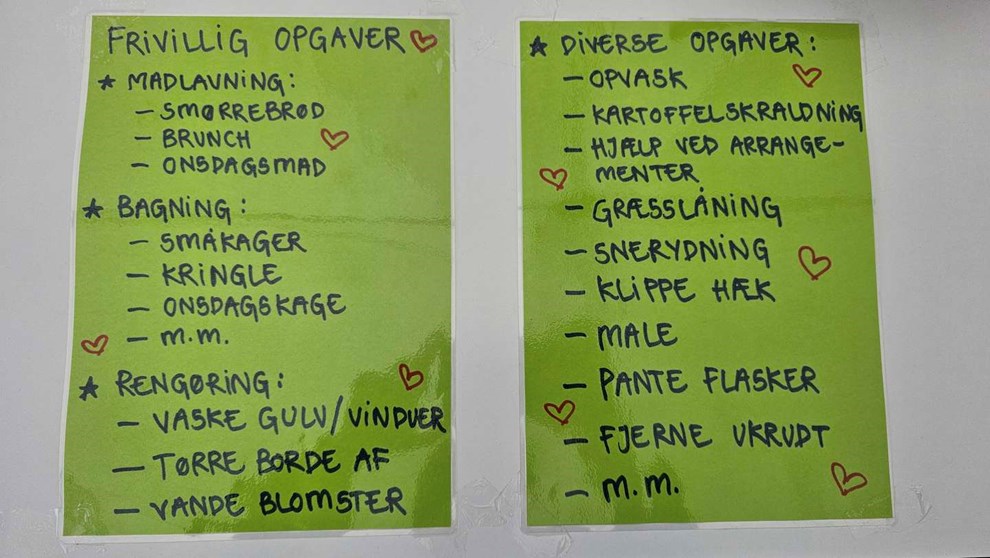 FRIVILLIG OPGAVER
* MADLAVNING:
- SMØRREBRØD
- BRUNCH
- ONSDAGSMAD
* BAGNING:
- SMÅKAGER
- KRINGLE
- ONSDAGSKAGE
- M.M.
* RENGØRING:
- VASKE GULV/VINDUER
- TØRRE BORDE AF
- VANDE BLOMSTER
* DIVERSE OPGAVER:
- OPVASK
- KARTOFFELSKRALDNING
- HJÆLP VED ARRANGE-
MENTER
- GRÆSSLÅNING
- SNERYDNING
- KLIPPE HÆK
- MALE
- PANTE FLASKER
- FJERNE UKRUDT
- M.M.